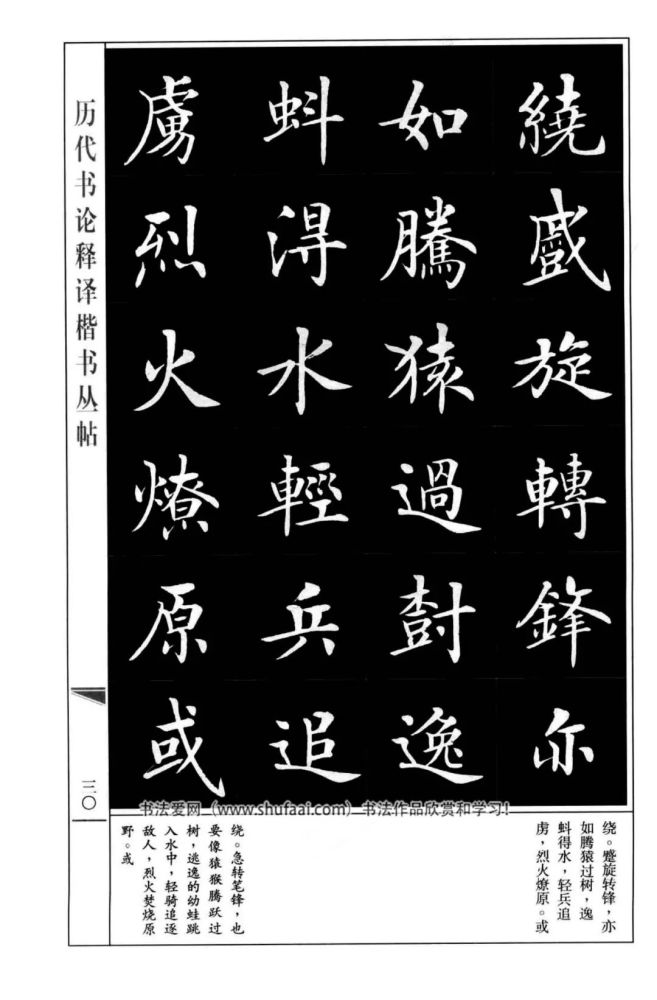 繞蹙旋轉鋒亦
如騰猿過樹逸
蚪得水輕兵追
虜烈火燎原或
历代书论释译楷书丛帖
三〇
书法爱网（www.shufaai.com）书法作品欣赏和学习!
绕。蹙旋转锋，亦
如腾猿过树，逸
蚪得水，轻兵追
虏，烈火燎原。或
绕。急转笔锋，也
要像猿猴腾跃过
树，逃逸的幼蛙跳
入水中，轻骑追逐
敌人，烈火焚烧原
野。或